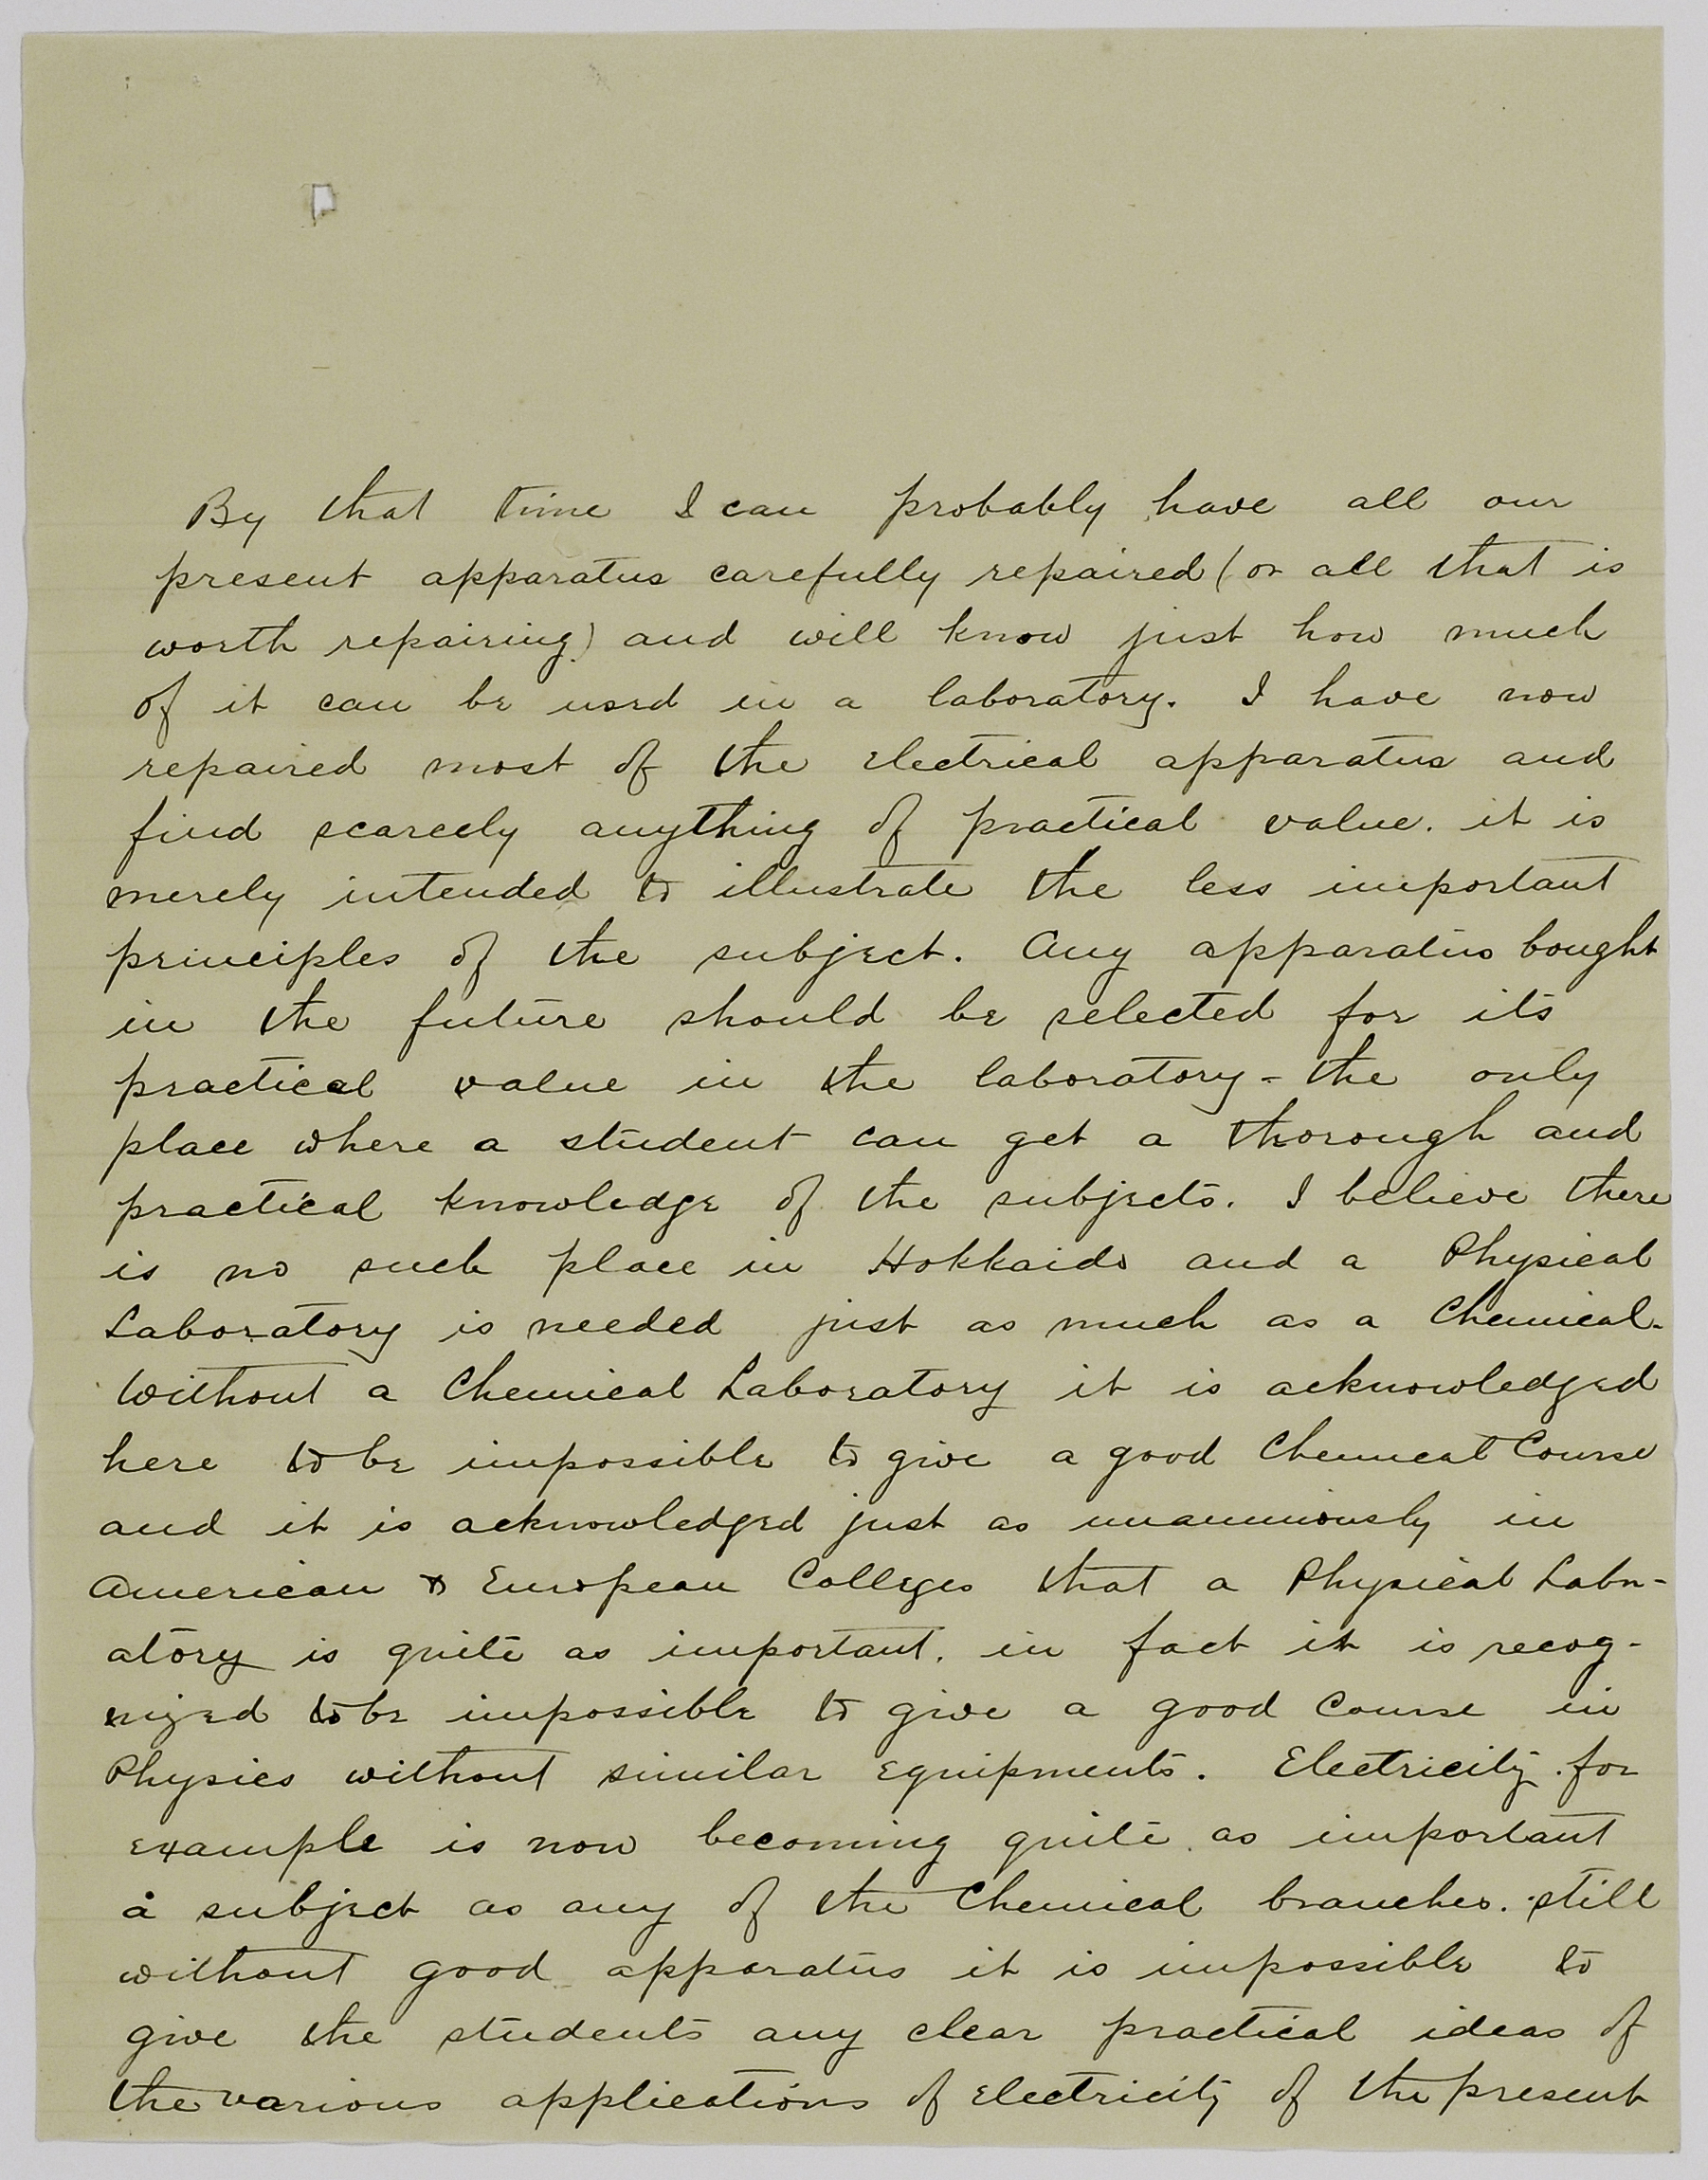 By that time I can probably have all our
present apparatus carefully repaired (or all that is
worth repairing) and will know just how much
of it can be used in a laboratory. I have now
repaired most of the electrical apparatus and
find scarcely anything of practical value. it is
merely intended to illustrate the less important
principles of the subject. Any apparatus bought
in the future should be selected for its
practical value in the laboratory - the only
place where a student can get a thorough and
practical knowledge of the subjects. I believe there
is no such place in Hokkaido and a Physical
Laboratory is needed just as much as a Chemical.
Without a Chemical Laboratory it is acknowledged
here to be impossible to give a good Chemical Course
and it is acknowledged just as unanimously in
American & European Colleges that a Physical Labor-
atory is quite as important. in fact it is recog-
nized to be impossible to give a good Course in
Physics without similar equipments. Electricity for
example is now becoming quite as important
a subject as any of the Chemical branches. still
without good apparatus it is impossible to
give the students any clear practical ideas of
the various applications of electricity of the present